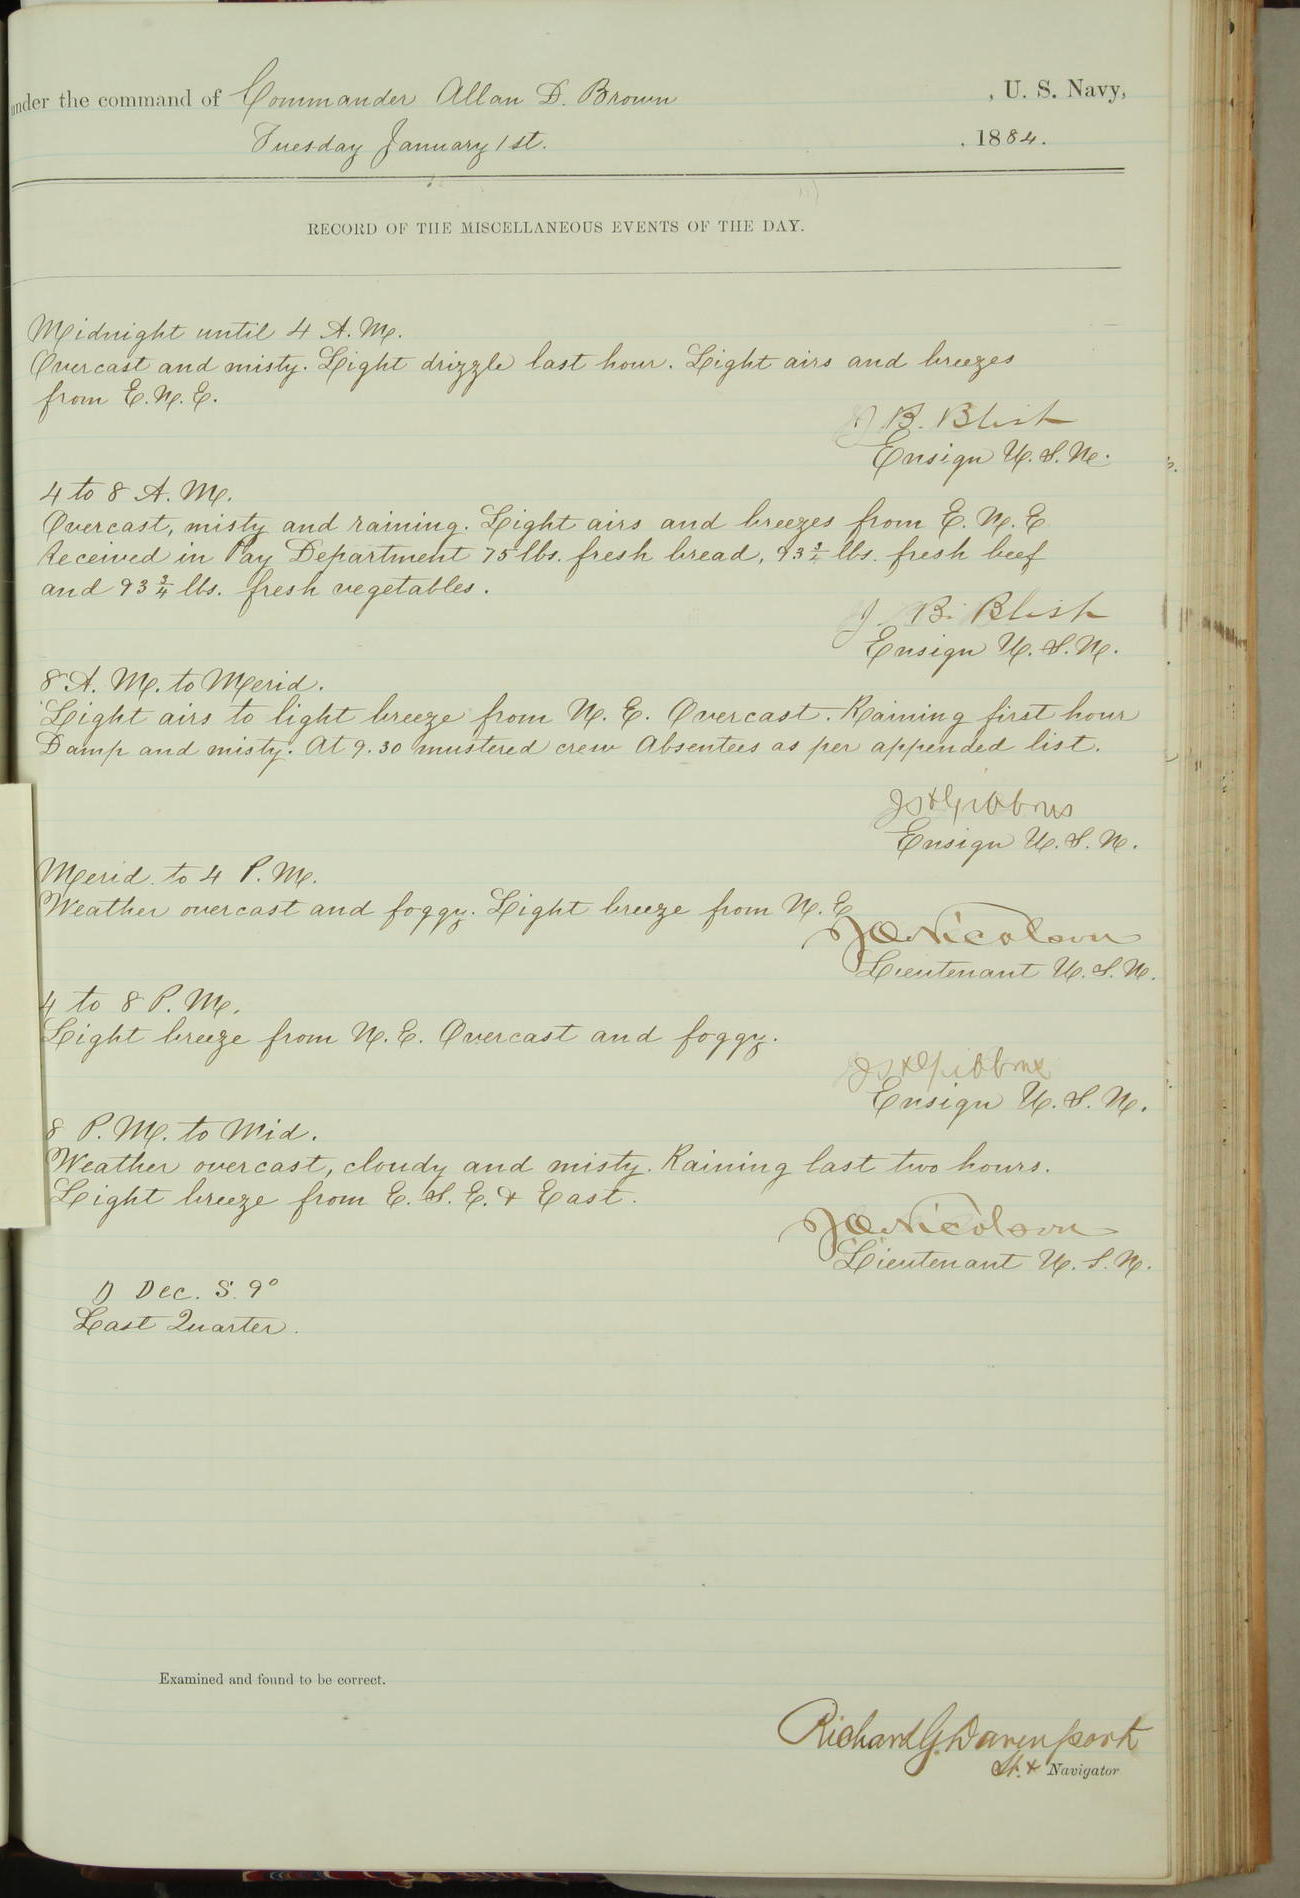 under the command of Commander Allan D. Brown , U. S. Navy,
Tuesday January 1st. , 1884.
RECORD OF THE MISCELLANEOUS EVENTS OF THE DAY.
Midnight until 4 A. M.
Overcast and misty. Light drizzle last hour. Light airs and breezes
from E. N. E.
J. B. Blish
Ensign U. S. N.
4 to 8 A. M.
Overcast, misty and raining. Light airs and breezes from E. N. E
Received in Pay Department 75 lbs. fresh bread, 93 3/4 lbs. fresh beef
and 93 3/4 lbs. fresh vegetables.
J. B. Blish
Ensign U. S. N.
8 A. M. to Merid.
Light airs to light breeze from N. E. Overcast. Raining first hour
Damp and misty. At 9.30 mustered crew Absentees as per appended list.
Gibbons
Ensign U. S. N.
Merid. to 4 P. M.
Weather overcast and foggy. Light breeze from N. E
J O Nicolson
Lieutenant U. S. N.
4 to 8 P. M.
Light breeze from N. E. Overcast and foggy.
Gibbons
Ensign U. S. N.
8 P. M. to Mid.
Weather overcast, cloudy and misty. Raining last two hours.
Light breeze from E. S. E. & East.
J O Nicolson
Lieutenant U. S. N.
Dec. S. 9°
Last Quarter.
Examined and found to be correct.
Richard G. Davenport
Lt. & Navigator